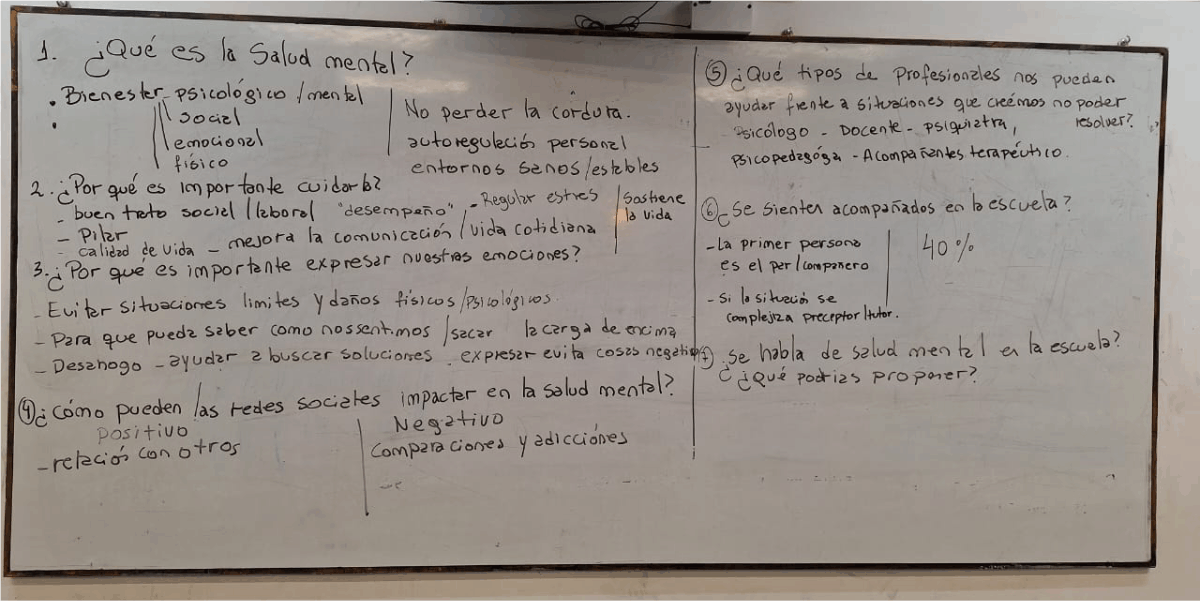 1. ¿Qué es la Salud mental?
• Bienester psicológico / mental
•
social
emocional
físico
No perder la cordura.
autoregulación personal
entornos sanos/estables
2. ¿Por qué es importante cuidarla?
- buen trato social / laboral "desempeño" - Regular estres
- Pilar
- calidad de vida - mejora la comunicación / vida cotidiana
Sostiene
la vida
3. ¿Por que es importante expresar nuestras emociones?
- Evitar situaciones limites y daños físicos/psicológicos.
- Para que pueda saber como nos sentimos / sacar la carga de encima
- Desahogo - ayudar a buscar soluciones. expresar evita cosas negativ
④ ¿Cómo pueden las redes sociales impactar en la salud mental?
positivo
- relación con otros
Negativo
Comparaciones y adicciónes
⑤ ¿Qué tipos de profesionales nos pueden
ayudar frente a situaciones que creémos no poder
resolver?
- Psicólogo - Docente - psiquiatra,
psicopedagóga - Acompañantes terapéutico.
⑥ ¿Se sienten acompañados en la escuela?
- La primer persona
es el par / compañero
- Si la situación se
complejiza preceptor / tutor.
40 %
⑦ Se habla de salud mental en la escuela?
¿ ¿Qué podrias proponer?